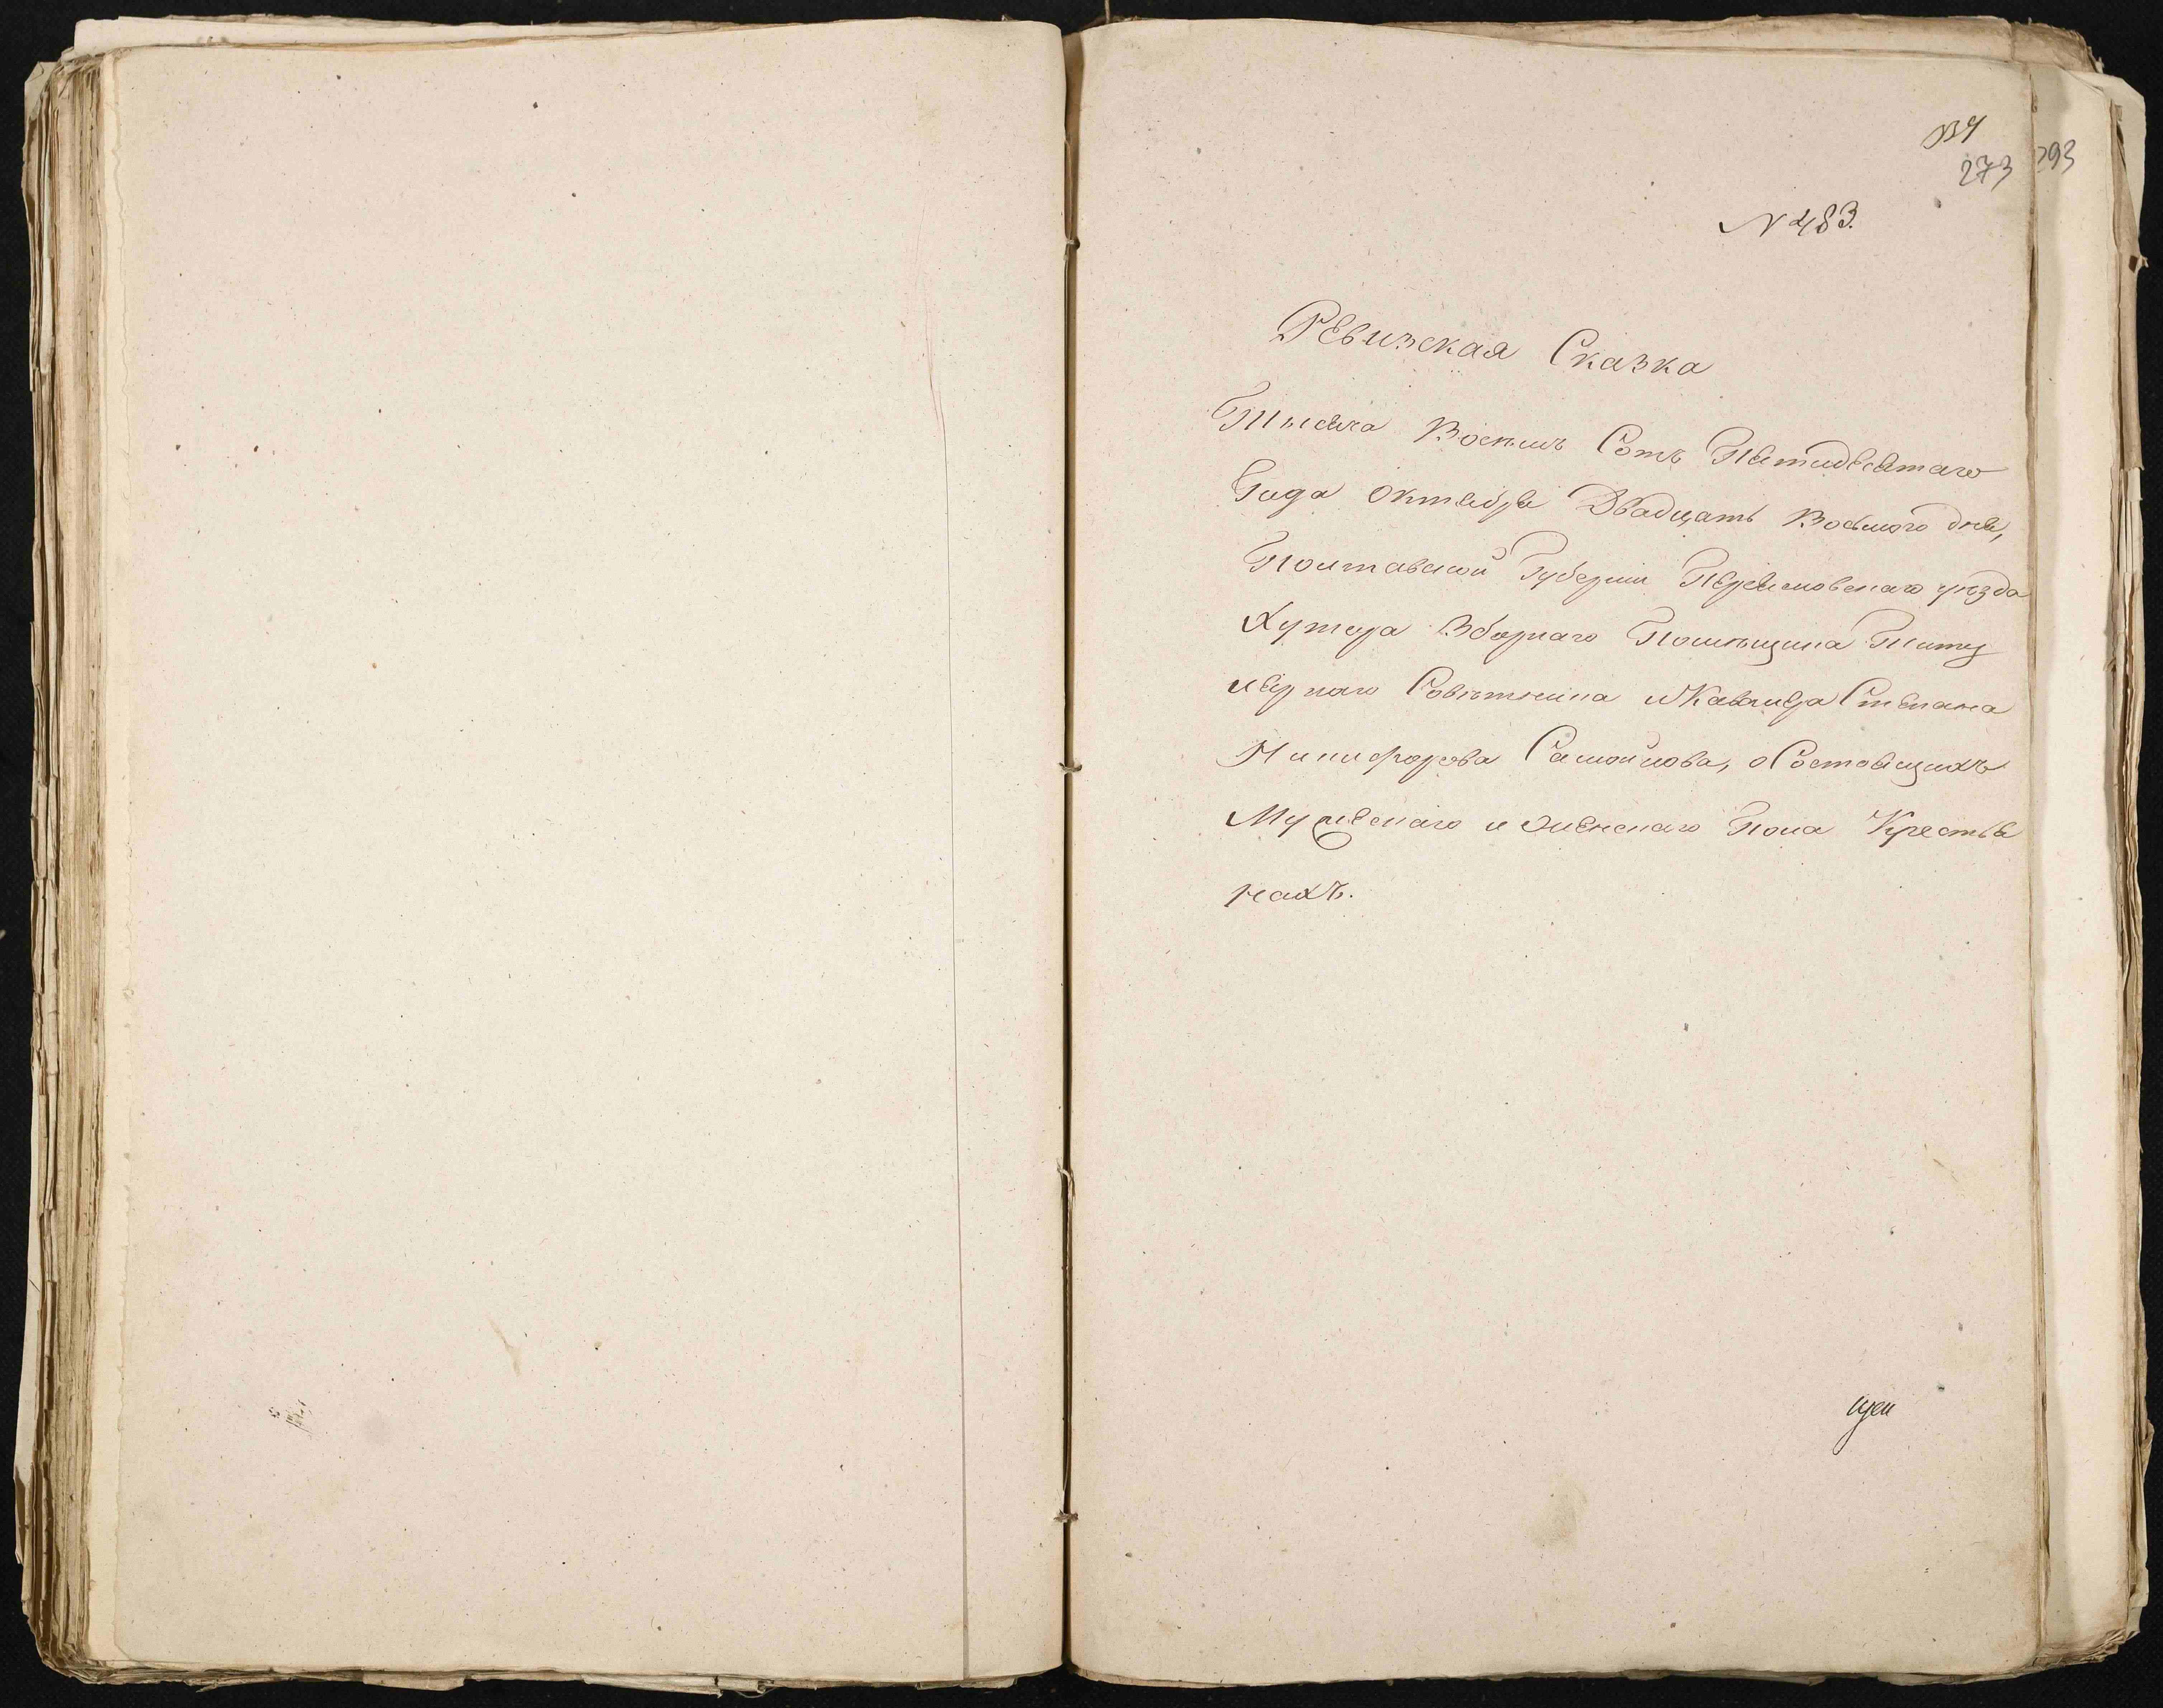 334
273
293
N 483.
Ревизская Сказка
Тысяча Восемь Сотъ Пятидесятаго
Года Октября Двадцать Восьмого дня,
Полтавской Губерніи Переяславскаго уезда
Хутора Зборнаго Помѣщика Титу
лярнаго Совѣтника и Кавалера Степана
Никифорова Самойлова, о Состоящихъ
Мужескаго и Женскаго Пола Крестья
нахъ.